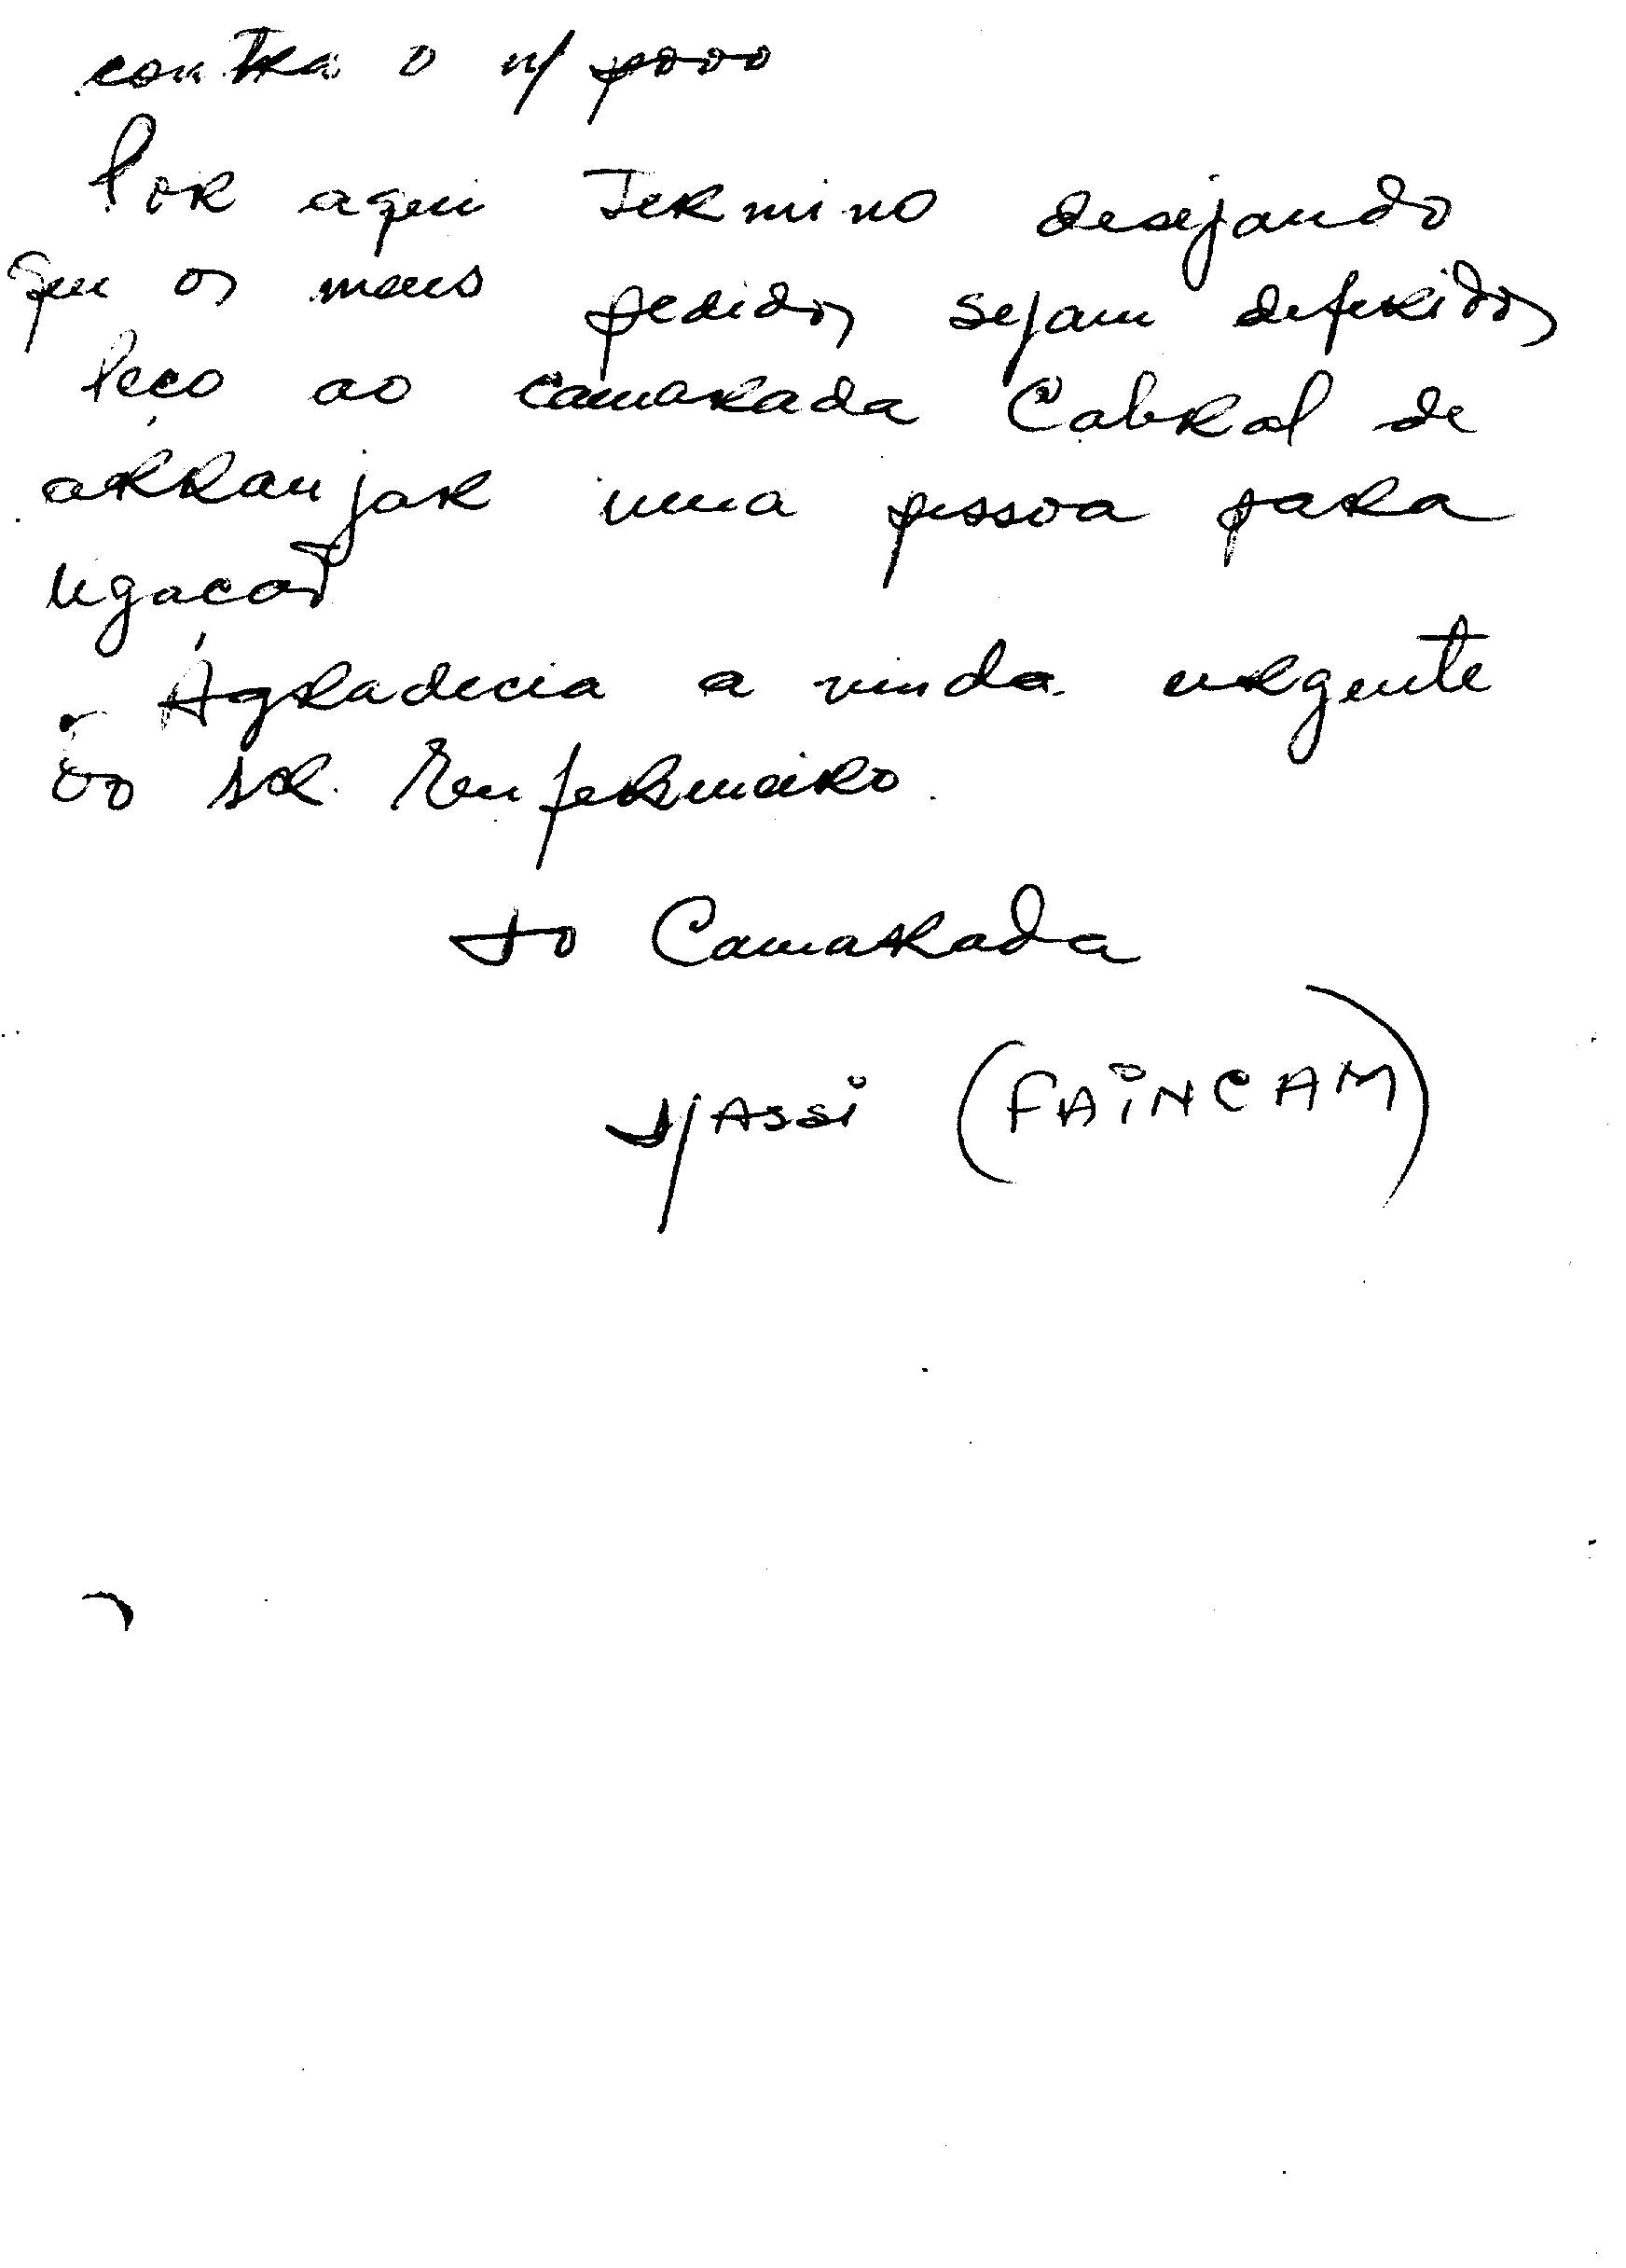 contra o n/ povo
Por aqui Termino desejando
que os meus pedidos sejam deferidos
Peço ao camarada Cabral de
arranjar uma pessoa para
ligação
Agradecia a vinda urgente
do sr. Enfermeiro.
do Camarada
N/Assi (FAINCAM)